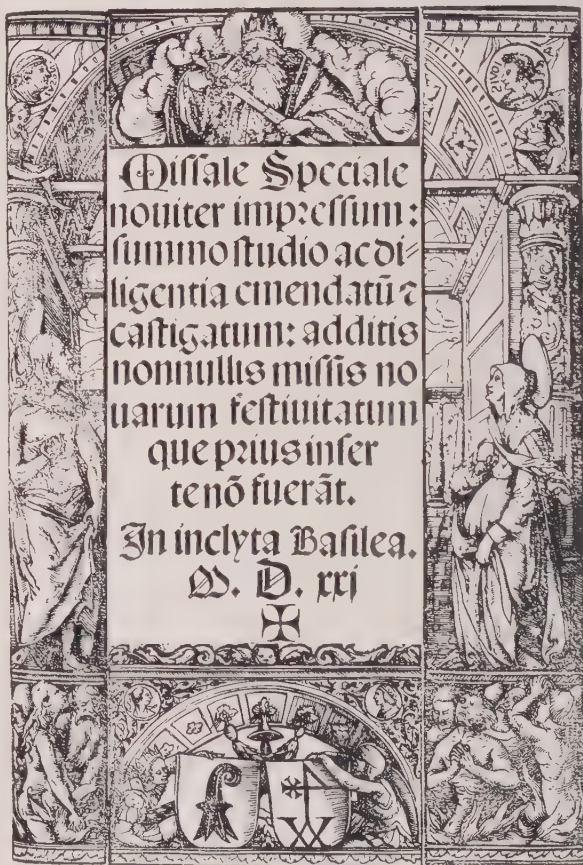 Missale Speciale
nouiter impressum:
summo studio ac di⸗
ligentia emendatū ⁊
castigatum: additis
nonnullis missis no
uarum festiuitatum
que prius inser
te nō fuerāt.
In inclyta Basilea.
M. D. xxj